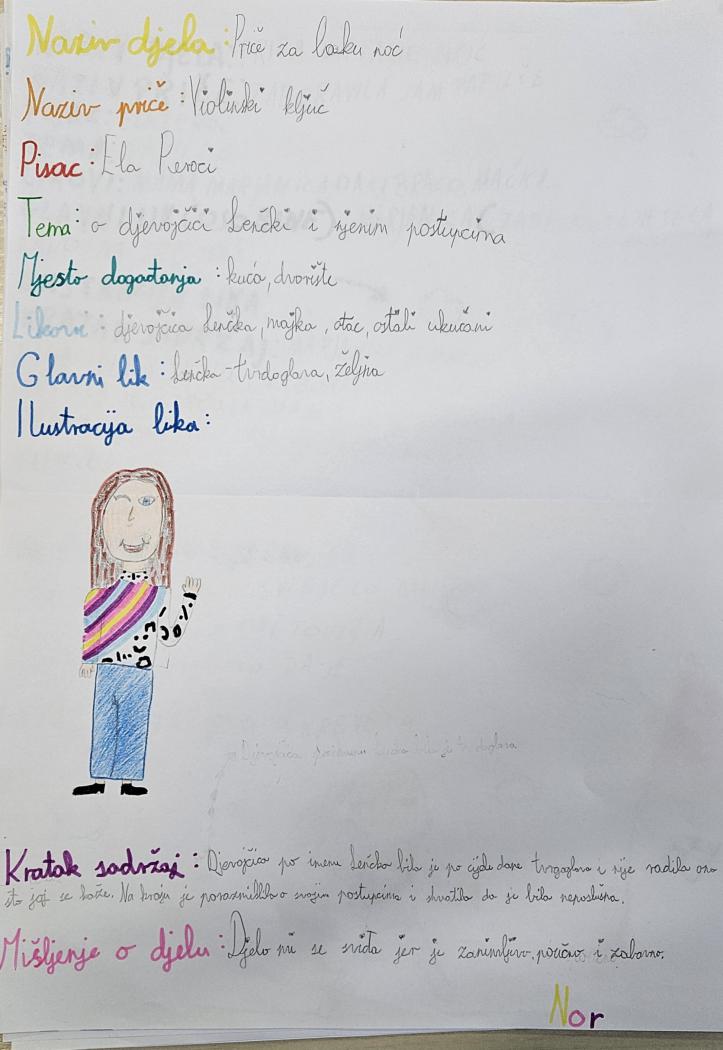 Naziv djela: Priče za laku noć
Naziv priče: Violinski ključ
Pisac: Ela Peroci
Tema: o djevojčici Lenčki i njenim postupcima
Mjesto događanja: kuća, dvorište
Likovi: djevojčica Lenčka, majka, otac, ostali ukućani
Glavni lik: Lenčka-tvrdoglava, željna
Ilustracija lika:
Djevojčica po imenu Lenčka bila je tvrdoglava
Kratak sadržaj: Djevojčica po imenu Lenčka bila je po cijele dane tvrdoglava i nije radila ono
što joj se kaže. Na kraju je porazmislila o svojim postupcima i shvatila da je bila neposlušna.
Mišljenje o djelu: Djelo mi se sviđa jer je zanimljivo, poučno i zabavno.
Nor